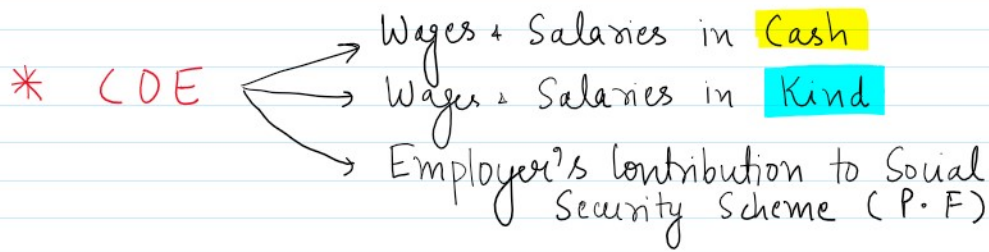 Wages & Salaries in Cash
* COE
Wages & Salaries in Kind
Employer's Contribution to Social
Security Scheme (P.F)